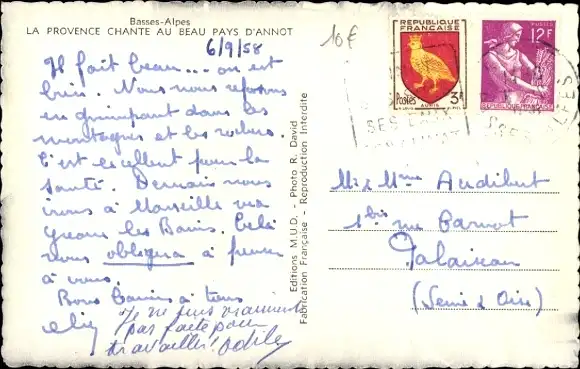 Basses-Alpes
LA PROVENCE CHANTE AU BEAU PAYS D'ANNOT
6/9/58
10€
Il fait beau... on est
bien. Nous nous reposons
en grimpant dans les
montagnes et les rochers.
C'est excellent pour la
santé. Demain nous
irons à Marseille via
Greoux les Bains. Cela
nous obligera à penser
à vous.
Bons baisers à tous
Je ne suis vraiment
pas faite pour
travailler! Odile
Editions M.U.D. - Photo R. David
Fabrication Française - Reproduction Interdite
REPUBLIQUE FRANÇAISE
Postes 3F
AUNIS
POSTES
12F
REPUBLIQUE FRANÇAISE
SES
Mr & Mme Audibert
1bis rue Carnot
Palaiseau
(Seine & Oise)